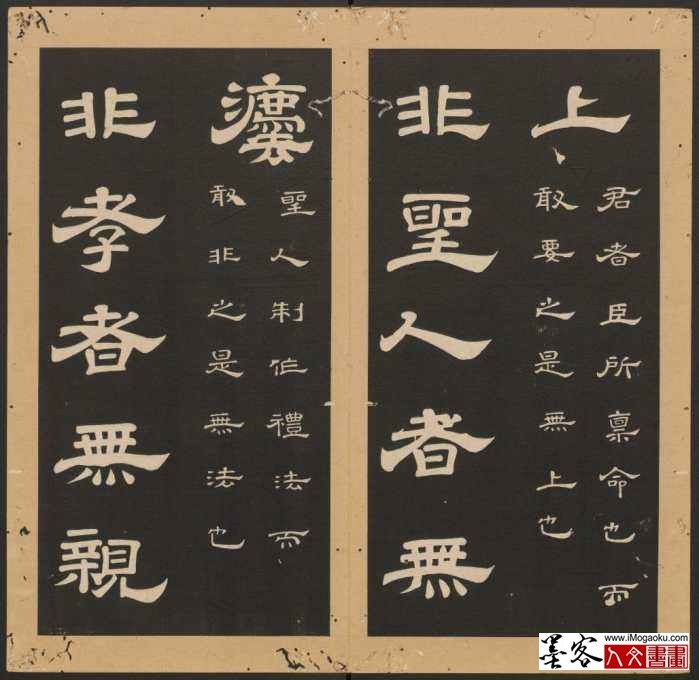 上
君者臣所稟命也而
敢要之是無上也
非聖人者無
灋
聖人制作禮法而
敢非之是無法也
非孝者無親
www.iMogaoku.com
墨客
人文書畫